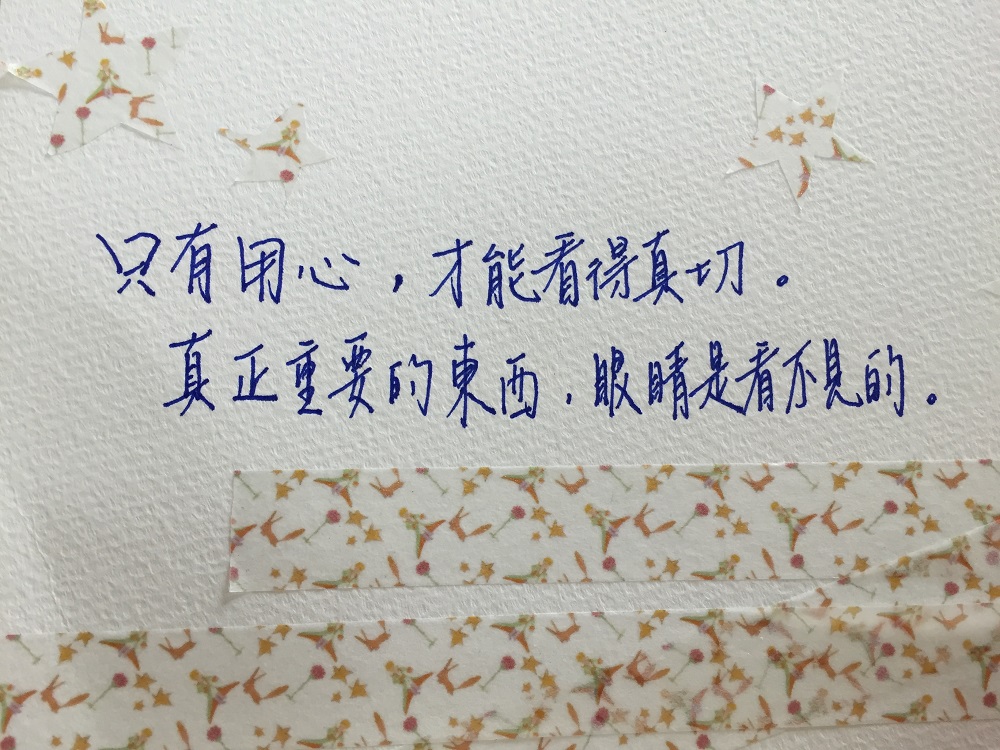 只有用心，才能看得真切。
真正重要的東西，眼睛是看不見的。